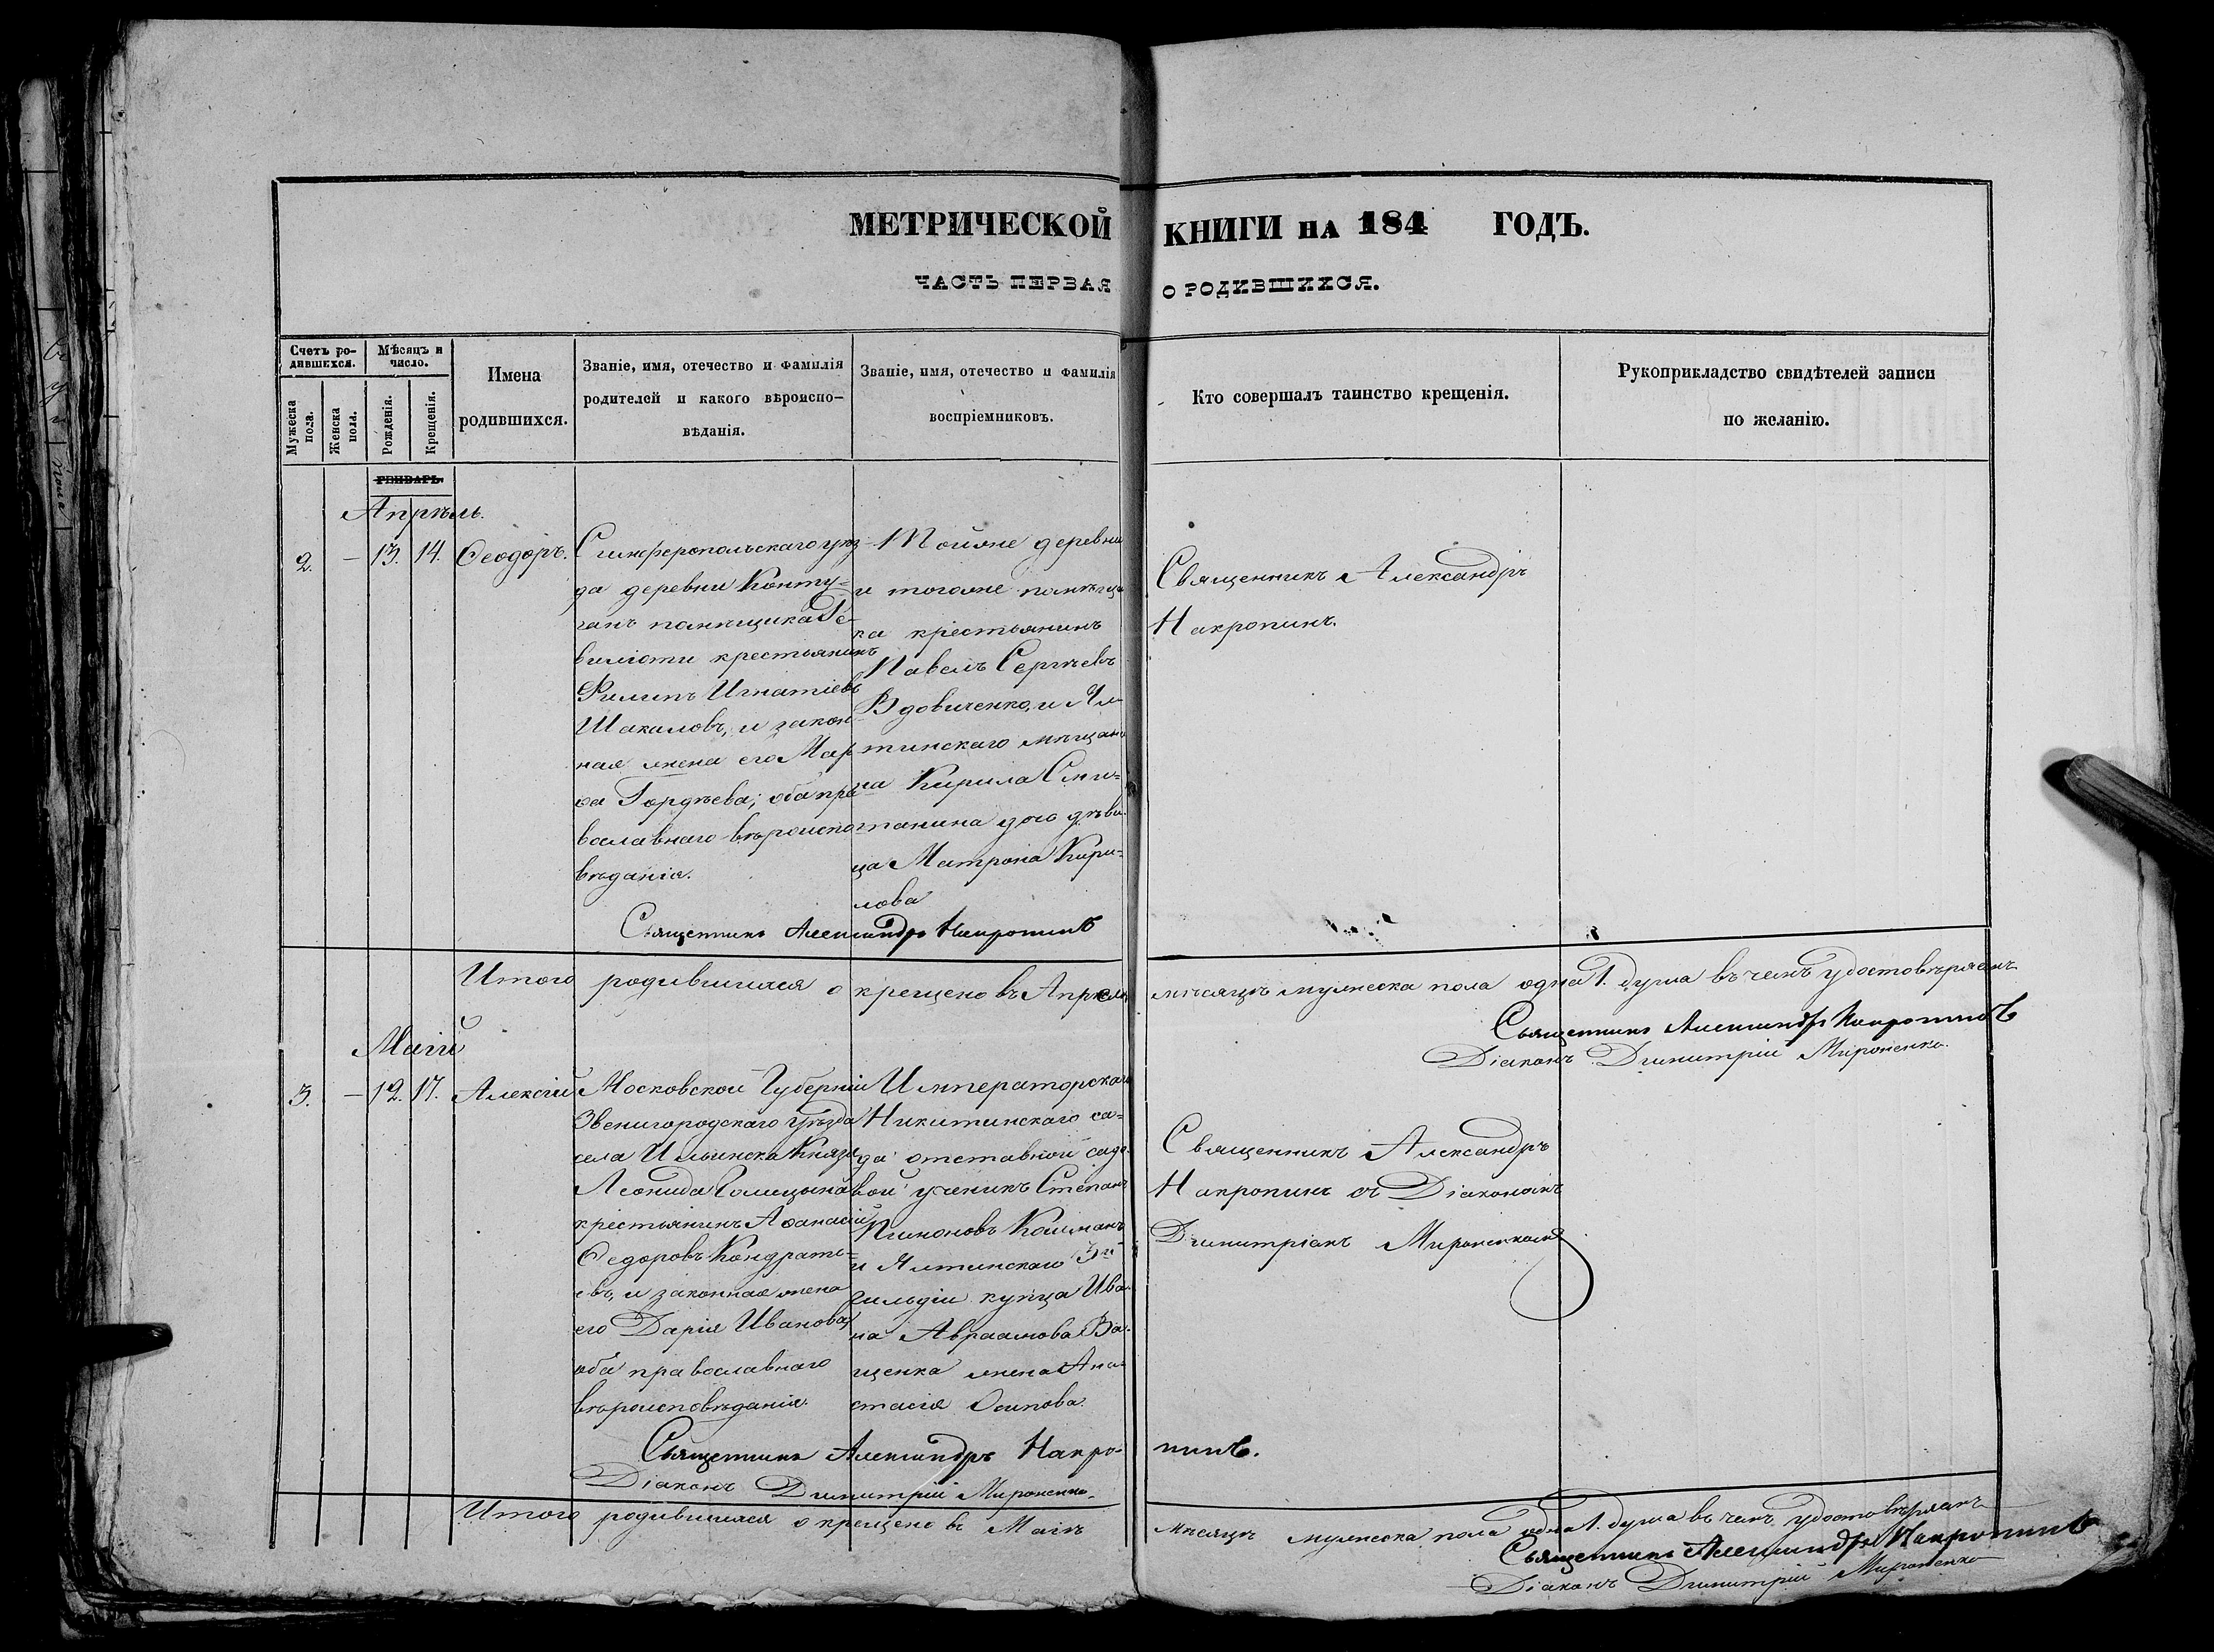 МЕТРИЧЕСКОЙ КНИГИ НА 184 ГОДЪ.
ЧАСТЬ ПЕРВАЯ О РОДИВШИХСЯ.
Счетъ ро-
дившихся.
Мужеска пола.
Женска пола.
Мѣсяцъ и
число.
Рожденія.
Крещенія.
Имена
родившихся.
Званіе, имя, отечество и фамилія
родителей и какого вѣроиспо-
вѣданія.
Званіе, имя, отечество и фамилія
воспріемниковъ.
Кто совершалъ таинство крещенія.
Рукоприкладство свидѣтелей записи
по желанію.
Апрѣль.
2. — 13. 14. Ѳеодоръ.
Симферопольскаго уѣз
да деревни
помѣщика Ре-
вилiоти крестьянинъ
Филипъ Игнатіевъ
Шакаловъ, и закон-
ная жена его Мар
ѳа Гордѣева; оба пра
вославнаго вѣроиспо
вѣданія.
Тойже деревни
и тогоже помѣщи
ка крестьянинъ
Павелъ Сергѣевъ
Вдовиченко, и Ял
тинскаго мѣщани
на Кирила Сми-
танина дочь дѣви
ца Матрона Кири-
лова
Священникъ Александръ Накропинъ
Священникъ Александръ
Накропинъ.
Итого родившихся и крещено въ Апрелѣ мѣсяцѣ мужеска пола одна 1. душа въ чемъ удостовѣряемъ
Священникъ Александръ Накропинъ
Діаконъ Димитрій Мироненко.
Маій
3. — 12. 17. Алексій
Московской Губерніи
Звенигородскаго Уѣзда
села Ильинска Князя
Леонида Голицына
крестьянинъ Аѳанасій
Ѳедоровъ Кондрати-
евъ, и законная жена
его Дарія Иванова,
оба православнаго
вѣроисповѣданія.
Императорскаго
Никитинскаго са-
да отставной садо-
вой ученикъ Степанъ
Кайманъ
и Ялтинскаго 3й
гильдіи купца Ива-
на Авраамова Ва-
щенка жена Ана-
стасія Осипова.
Священникъ Александръ Накро-пинъ.
Діаконъ Димитрій Мироненко.
Священникъ Александръ
Накропинъ съ Діакономъ
Димитріемъ Мироненкомъ
Итого родившихся и крещено въ Маіѣ мѣсяцѣ мужеска пола одна 1. душа въ чемъ удостовѣряемъ
Священникъ Александръ Накропинъ
Діаконъ Димитрій Мироненко